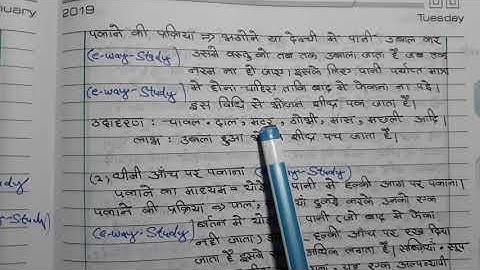 nuary 2019
Tuesday
पकाने की प्रक्रिया ⇒ भगोने या देगची में पानी उबाल कर
(e-way-Study) उसमें वस्तु को तब तक उबाला जाता है जब तक
नरम ना हो जाए। इसके लिए पानी पर्याप्त मात्रा
(e-way-Study) में होना चाहिए ताकि बाद में फेंकना ना पड़े।
इस विधि से भोजन शीघ्र पक जाता है।
उदाहरण :- चावल, दाल, मटर, गोभी, मांस, मछली आदि।
लाभ : उबला हुआ शीघ्र पच जाता है।
(2) धीमी आँच पर पकाना (e-way-Study)
पकाने का माध्यम = पानी में हल्की आग पर पकाना।
पकाने की प्रक्रिया ⇒ फल, टुकड़े करके उनको एक
(e-way-Study) बर्तन में पानी (जो बाद में फेंका
नहीं जाता) हल्की आँच पर रख दिया
अधिक लगता है। सब्जियां, सूप